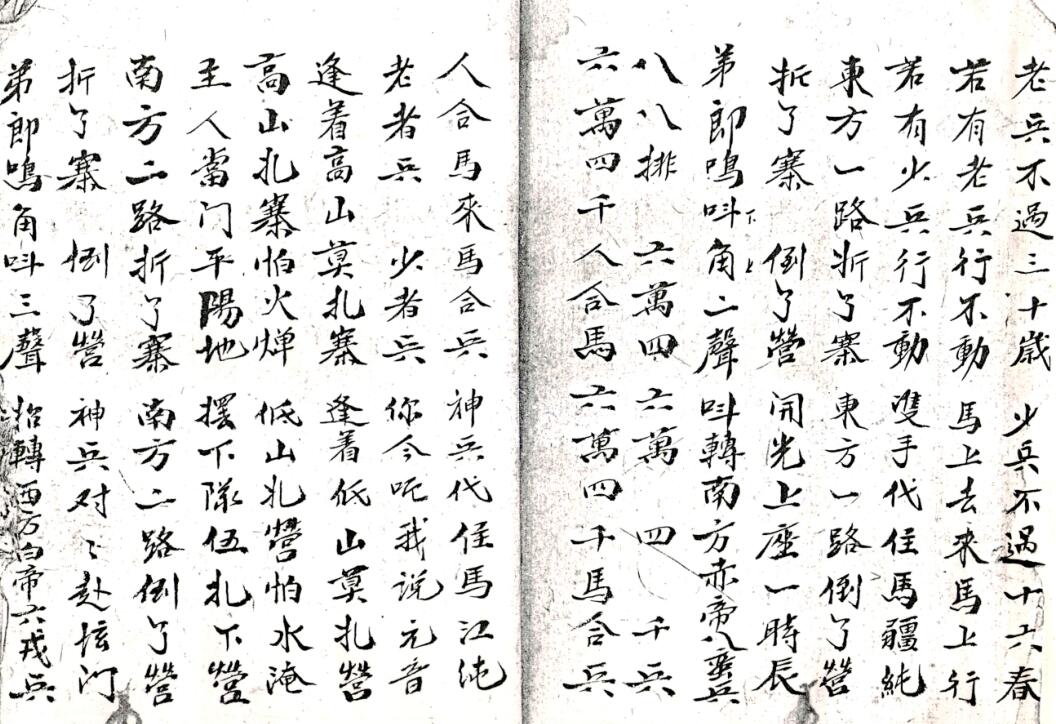 老兵不過三十歲 少兵不過十六春
若有老兵行不動 馬上去來馬上行
若有少兵行不動 雙手代住馬疆純
東方一路折了寨 東方一路倒了營
折了寨 倒了營 開光上座一時辰
弟郎鳴呌下角上二聲 呌轉南方赤帝八蛮兵
八八排 六萬四 六萬四千兵
六萬四千人合馬 六萬四千馬合兵
人合馬來馬合兵 神兵代住馬江純
老者兵 少者兵 你今听我説元音
逢着高山莫扎寨 逢着低山莫扎營
高山扎寨怕火燀 低山扎營怕水淹
主人當门平陽地 摆下隊伍扎下營
南方二路折了寨 南方二路倒了營
折了寨 倒了營 神兵对〻赴坛门
弟郎鳴角呌三聲 招轉西方白帝六戎兵